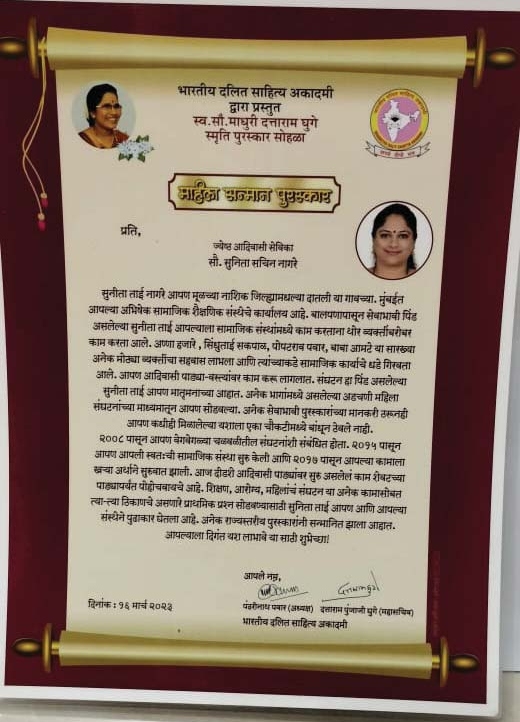 भारतीय दलित साहित्य अकादमी
द्वारा प्रस्तुत
स्व.सौ.माधुरी दत्ताराम घुगे
स्मृति पुरस्कार सोहळा
सन्मान पुरस्कार
प्रति,
ज्येष्ठ आदिवासी सेविका
सौ. सुनिता सचिन नागरे
सुनीता ताई नागरे आपण मूळच्या नाशिक जिल्ह्यामधल्या दातली या गावच्या. मुंबईत
आपल्या अभिषेक सामाजिक शैक्षणिक संस्थेचे कार्यालय आहे. बालपणापासून सेवाभावी पिंड
असलेल्या सुनीता ताई आपल्याला सामाजिक संस्थांमध्ये काम करताना थोर व्यक्तींबरोबर
काम करता आले. अण्णा हजारे , सिंधुताई सकपाळ, पोपटराव पवार, बाबा आमटे या सारख्या
अनेक मोठ्या व्यक्तींचा सहवास लाभला आणि त्यांच्याकडे सामाजिक कार्याचे धडे गिरवता
आले. आपण आदिवासी पाड्या-वस्त्यांवर काम करू लागलात. संघटन हा पिंड असलेल्या
सुनीता ताई आपण मातृमनाच्या आहात. अनेक भागांमध्ये असलेल्या अडचणी महिला
संघटनांच्या माध्यमातून आपण सोडवल्या. अनेक सेवाभावी पुरस्कारांच्या मानकरी ठरूनही
आपण कधीही मिळालेल्या यशाला एका चौकटीमध्ये बांधून ठेवले नाही.
२००८ पासून आपण वेगवेगळ्या चळवळीतील संघटनांशी संबंधित होता. २०१५ पासून
आपण आपली स्वतःची सामाजिक संस्था सुरु केली आणि २०१७ पासून आपल्या कामाला
खऱ्या अर्थाने सुरुवात झाली. आज दीडशे आदिवासी पाड्यांवर सुरु असलेलं काम शेवटच्या
पाड्यापर्यंत पोहोचवायचे आहे. शिक्षण, आरोग्य, महिलांचं संघटन या अनेक कामासोबत
त्या-त्या ठिकाणचे असणारे प्राथमिक प्रश्न सोडवण्यासाठी सुनिता ताई आपण आणि आपल्या
संस्थेने पुढाकार घेतला आहे. अनेक राज्यस्तरीय पुरस्कारांनी सन्मानित झाला आहात.
आपल्याला दिगंत यश लाभावे या साठी शुभेच्छा!
आपले नम्र,
दिनांक : १६ मार्च २०२३
पंढरीनाथ पवार (अध्यक्ष) दत्ताराम पुंजाजी घुगे (महासचिव)
भारतीय दलित साहित्य अकादमी